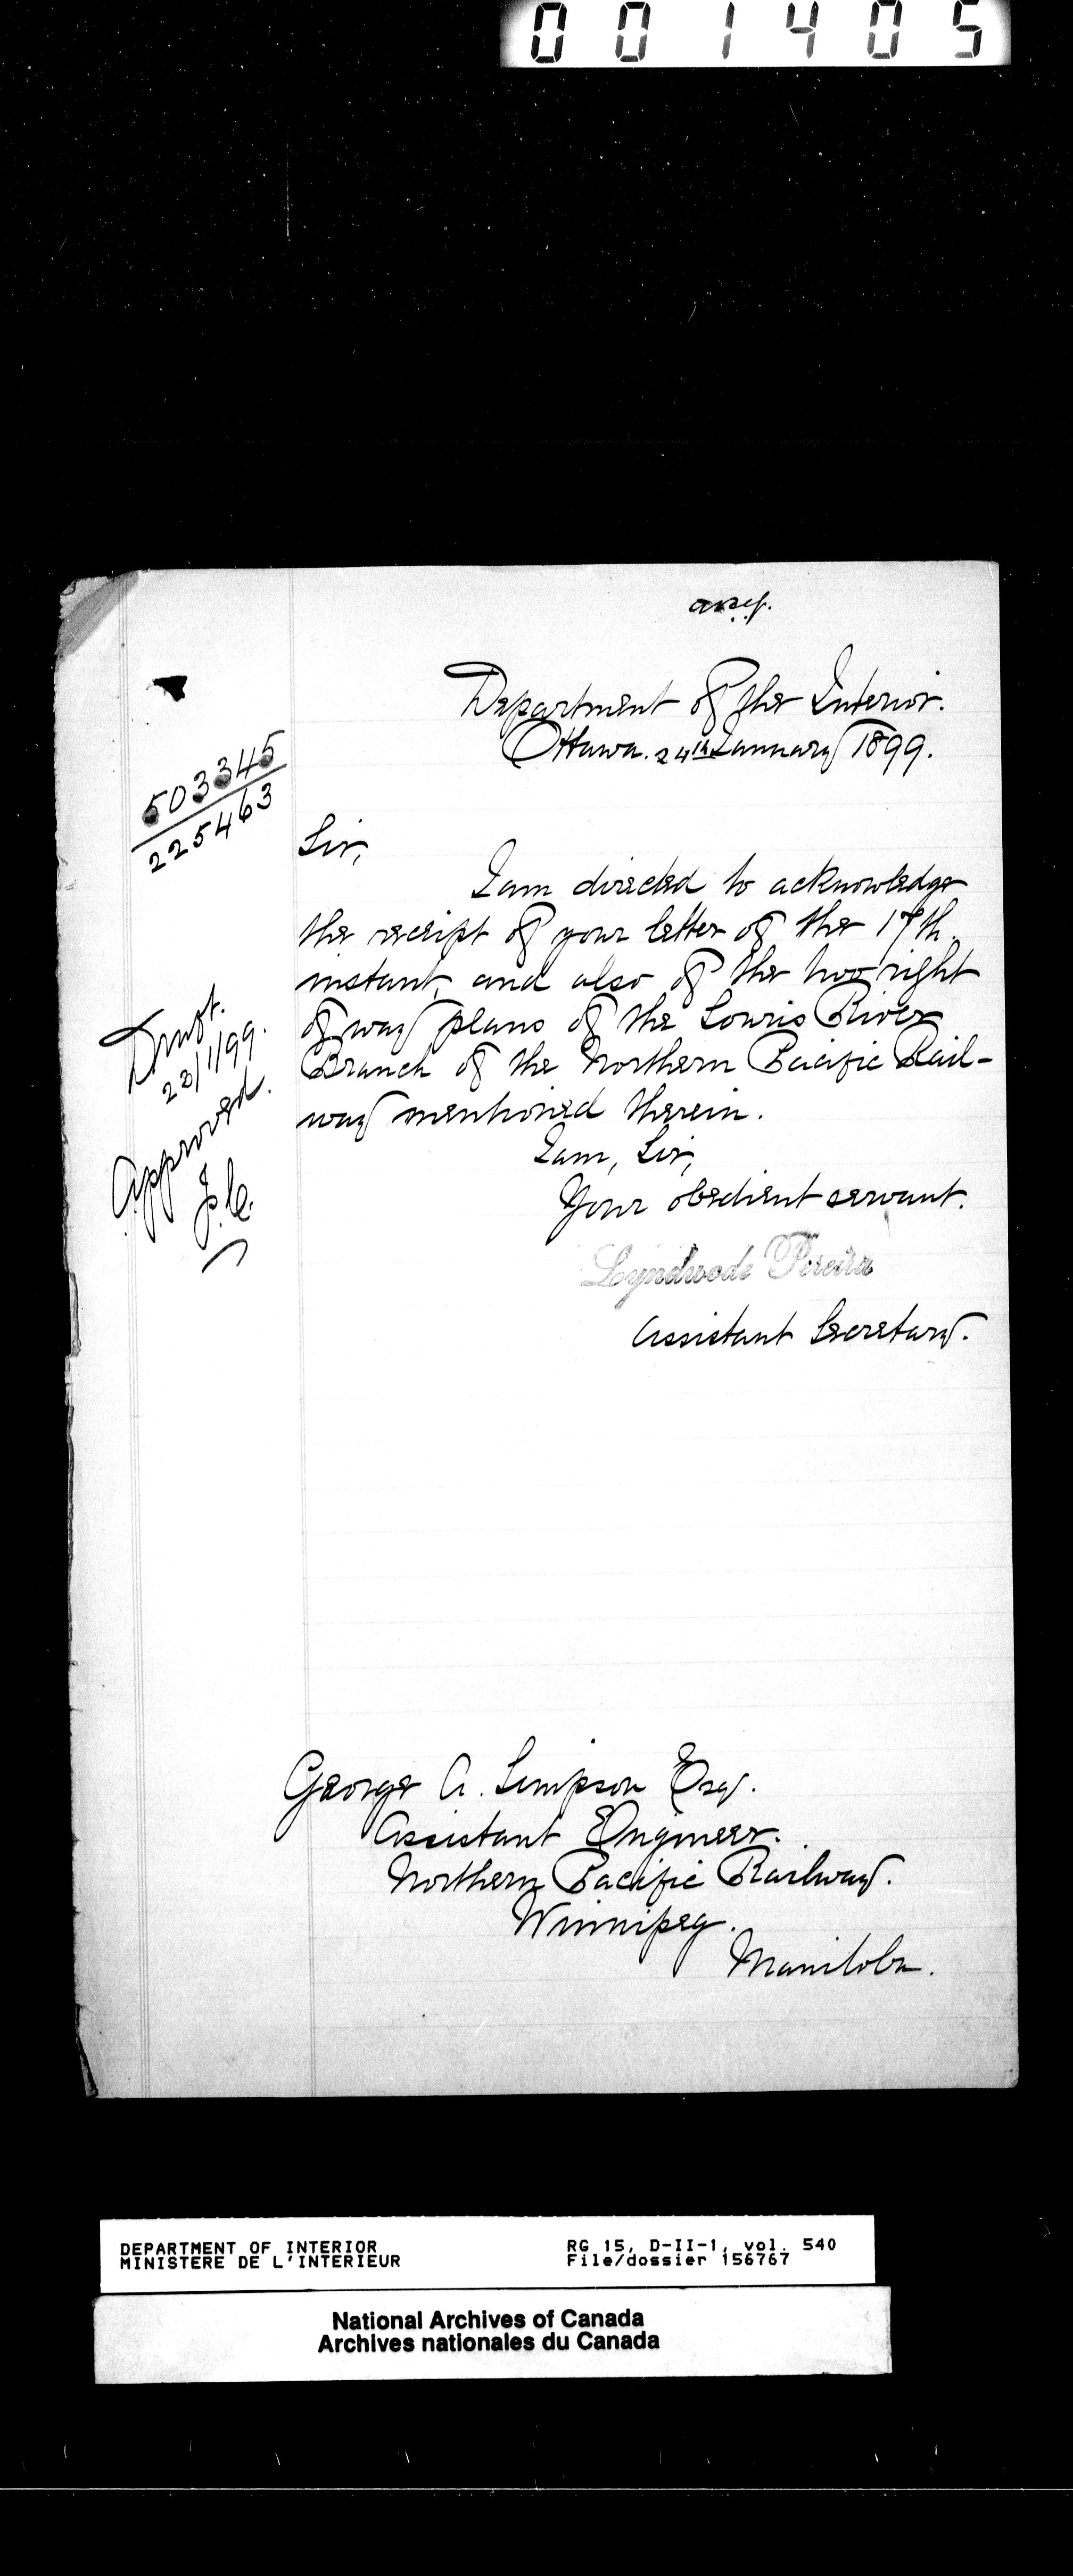 001405
Department of the Interior.
Ottawa. 24th January 1899.
503345
225463
Sir,
I am directed to acknowledge
the receipt of your letter of the 17th
instant, and also of the two right
of way plans of the Souris River
Branch of the Northern Pacific Rail-
way mentioned therein.
Draft.
23/1/99.
Approved.
I am, Sir,
Your obedient servant.
Lyndwode Pereira
Assistant Secretary.
George A. Simpson Esq.
Assistant Engineer.
Northern Pacific Railway.
Winnipeg.
Manitoba.
DEPARTMENT OF INTERIOR RG 15, D-II-1, vol. 540
MINISTERE DE L'INTERIEUR File/dossier 156767
National Archives of Canada
Archives nationales du Canada